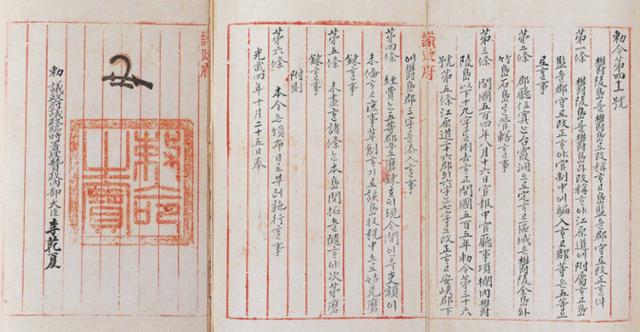 勅令第四十一號
鬱陵島를 鬱島로 改稱ᄒᆞ고 島監을 郡守로 改正ᄒᆞᆫ 件
第一條 鬱陵島를 鬱島라 改稱ᄒᆞ야 江原道에 附屬ᄒᆞ고 島
監을 郡守로 改正ᄒᆞ야 官制中에 編入ᄒᆞ고 郡等은 五等으
로 ᄒᆞᆯ 事
第二條 郡廳位寘ᄂᆞᆫ 台霞洞으로 定ᄒᆞ고 區域은 鬱陵全島와
竹島石島를 管轄ᄒᆞᆯ 事
第三條 開國五百四年八月十六日官報中官廳事項欄內鬱
陵島以下十九字를 刪去ᄒᆞ고 開國五百五年勅令第三十六
號第五條江原道二十六郡의 六字ᄂᆞᆫ 七字로 改正ᄒᆞ고 安峽郡下
에 鬱島郡三字를 添入ᄒᆞᆯ 事
議政府
第四條 經費ᄂᆞᆫ 五等郡으로 磨鍊ᄒᆞ되 現今間인즉 吏額이
未備ᄒᆞ고 庶事草創ᄒᆞ기로 該島收稅中으로 姑先磨
鍊ᄒᆞᆯ 事
第五條 未盡ᄒᆞᆫ 諸條ᄂᆞᆫ 本島開拓을 隨ᄒᆞ야 次第磨
鍊ᄒᆞᆯ 事
附則
第六條 本令은 頒布日로부터 施行ᄒᆞᆯ 事
光武四年十月二十五日奉
議政府
勅命之寶
勅 議政府議政臨時署理贊政內部大臣 李乾夏